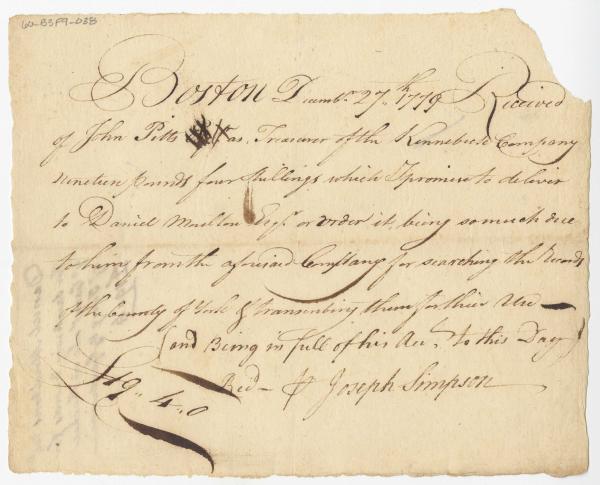 60-B3F9-038
Boston Decembr. 27th. 1779 Received
of John Pitts as Treasurer of the Kennebeck Company
nineteen pounds four shillings which I promise to deliver
to Daniel Moulton Esqr. or order it being so much due
to him from the aforesaid Company for searching the Records
of the County of York & transcribing them for their Use
(and Being in full of his Acct. to this Day)
£19..4..0
Recd - Joseph Simpson